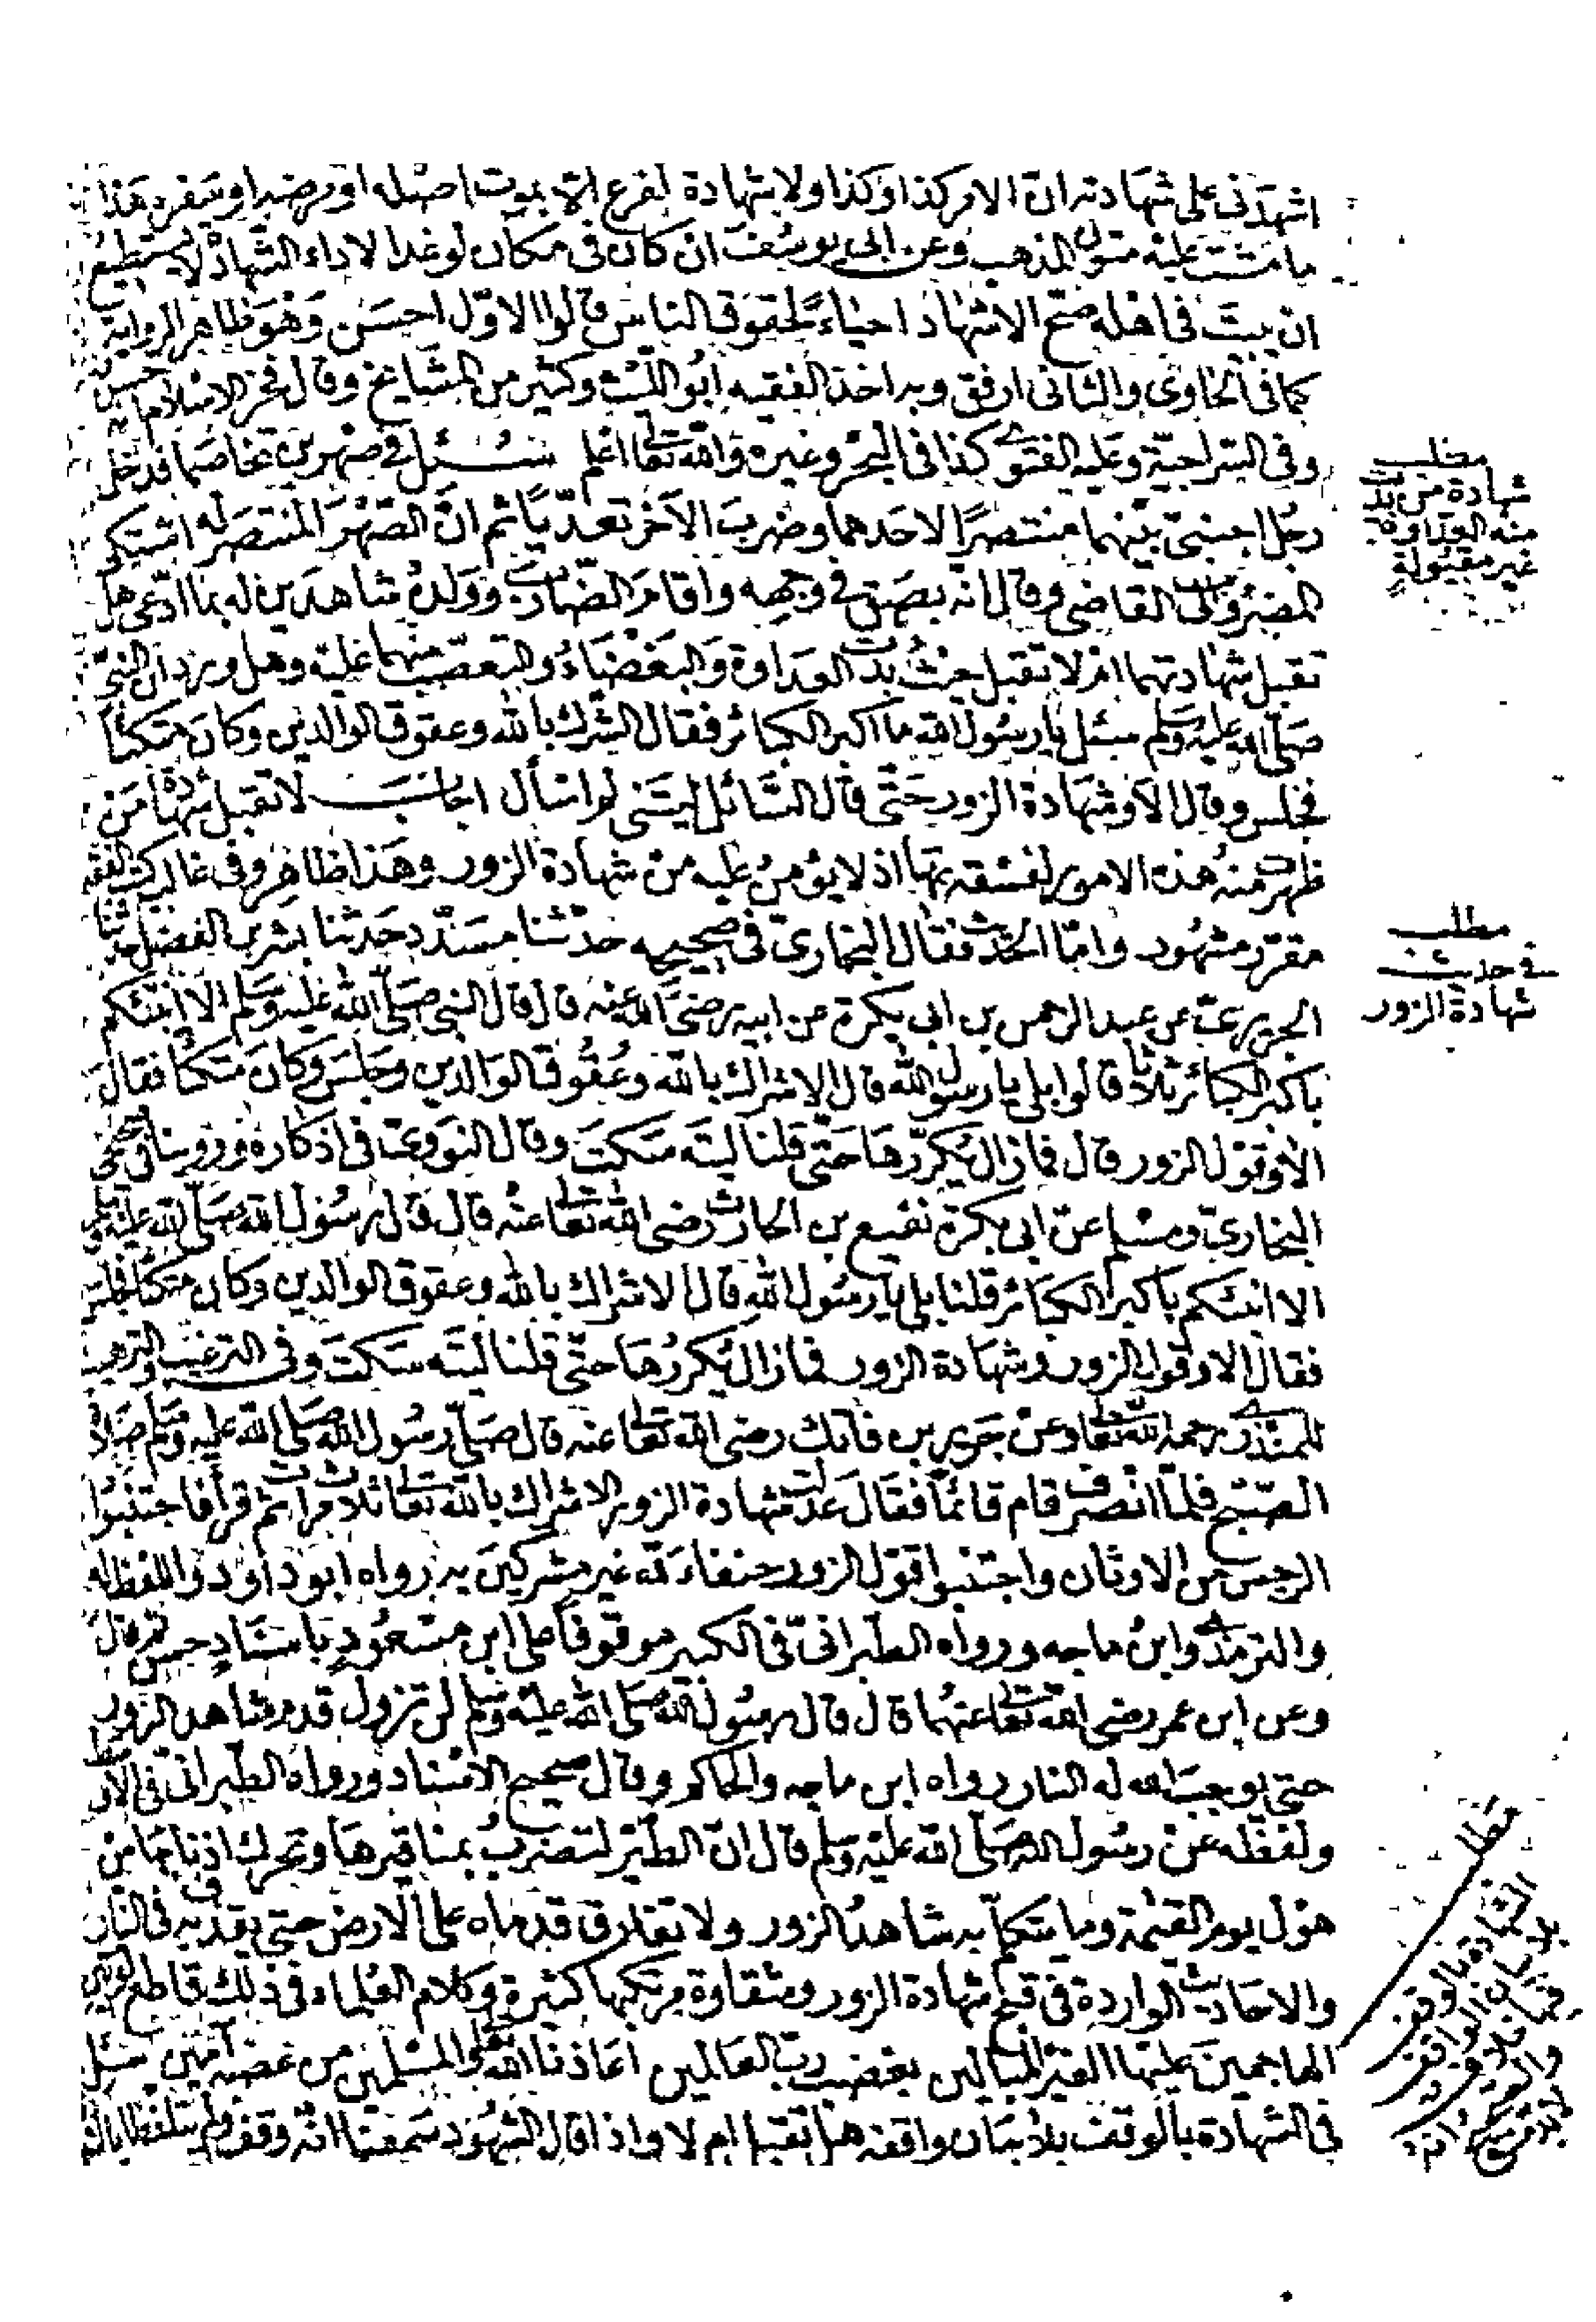 اشهدنى على شهادته ان الامر كذا وكذا ولا شهادة لفرع الا بموت اصله او مرضه او سفر هذا
ما مشت عليه متون المذهب وعن ابى يوسف ان كان فى مكان لو غدا لاداء الشهادة لا يستطيع
ان يبت فى اهله صح الاشهاد احياءً لحقوق الناس قالوا الاول احسن وهو ظاهر الرواية
كما فى الحاوى والثانى ارفق وبه اخذ الفقيه ابو الليث وكثير من المشايخ وقال فخر الاسلام انه حسن
وفى السراجية وعليه الفتوى كذا فى البحر وغيره والله تعالى اعلم سئل فى صهرين تخاصما فدخل
رجل اجنبى بينهما منتصرًا لاحدهما وضرب الآخر تعديًا ثم ان الصهر المنتصر له اشتكى
المضروب الى القاضى وقال انه بصق فى وجهه واقام الضارب وولده شاهدين له بما ادعى هل
تقبل شهادتهما ام لا تقبل حيث بدت العداوة والبغضاء والتعصب منهما عليه وهل ورد ان النبى
صلى الله عليه وسلم سئل يا رسول الله ما اكبر الكبائر فقال الشرك بالله وعقوق الوالدين وكان متكئًا
فجلس وقال الا وشهادة الزور حتى قال السائل ليتنى لم اسأل اجاب لا تقبل شهادة من
ظهرت منه هذه الامور لفسقه بها اذ لا يؤمن عليه من شهادة الزور وهذا ظاهر وفى غالب كتب الفقه
مقرر مشهود واما الحديث فقال البخارى فى صحيحه حدثنا مسدد حدثنا بشر بن الفضل حدثنا
الجريرى عن عبد الرحمن بن ابى بكرة عن ابيه رضى الله عنه قال قال النبى صلى الله عليه وسلم الا انبئكم
باكبر الكبائر ثلاثا قالوا بلى يا رسول الله قال الاشراك بالله وعقوق الوالدين وجلس وكان متكئا فقال
الا وقول الزور قال فما زال يكررها حتى قلنا ليته سكت وقال النووى فى اذكاره وروينا فى صحيحى
البخارى ومسلم عن ابى بكرة نفيع بن الحارث رضى الله تعالى عنه قال قال رسول الله صلى الله عليه وسلم
الا انبئكم باكبر الكبائر قلنا بلى يا رسول الله قال الاشراك بالله وعقوق الوالدين وكان متكئًا فجلس
فقال الا وقول الزور وشهادة الزور فما زال يكررها حتى قلنا ليته سكت وفى الترغيب والترهيب
للمنذرى رحمه الله تعالى وعن خريم بن فاتك رضى الله تعالى عنه قال صلى رسول الله صلى الله عليه وسلم صلاة
الصبح فلما انصرف قام قائمًا فقال عدلت شهادة الزور الاشراك بالله تعالى ثلاث مرات ثم قرأ فاجتنبوا
الرجس من الاوثان واجتنبوا قول الزور حنفاء لله غير مشركين به رواه ابو داود واللفظ له
والترمذى وابن ماجه ورواه الطبرانى فى الكبير موقوفًا على ابن مسعود باسناد حسن ثم قال
وعن ابن عمر رضى الله تعالى عنهما قال قال رسول الله صلى الله عليه وسلم لن تزول قدم شاهد الزور
حتى يوجب الله له النار رواه ابن ماجه والحاكم وقال صحيح الاسناد ورواه الطبرانى فى الاوسط
ولفظه عن رسول الله صلى الله عليه وسلم قال ان الطير لتضرب بمناقيرها وتحرك اذنابها من
هول يوم القيمة وما يتكلم به شاهد الزور ولا تفارق قدماه على الارض حتى يقذف به فى النار
والاحاديث الواردة فى قبح شهادة الزور وشقاوة مرتكبها كثيرة وكلام العلماء فى ذلك قاطع
الهاجمين عليها الغير المبالين بغضب رب العالمين اعاذنا الله تعالى والمسلمين من غضبه آمين سئل
فى الشهادة بالوقف بلا بيان واقفه هل تقبل ام لا واذا قال الشهود سمعنا انه وقف ولم يتلفظا
مطلب
شهادة من بدت
منه العداوة
غير مقبولة
مطلب
فى حديث
شهادة الزور
مطلب
الشهادة بالوقف
بلا بيان الواقف